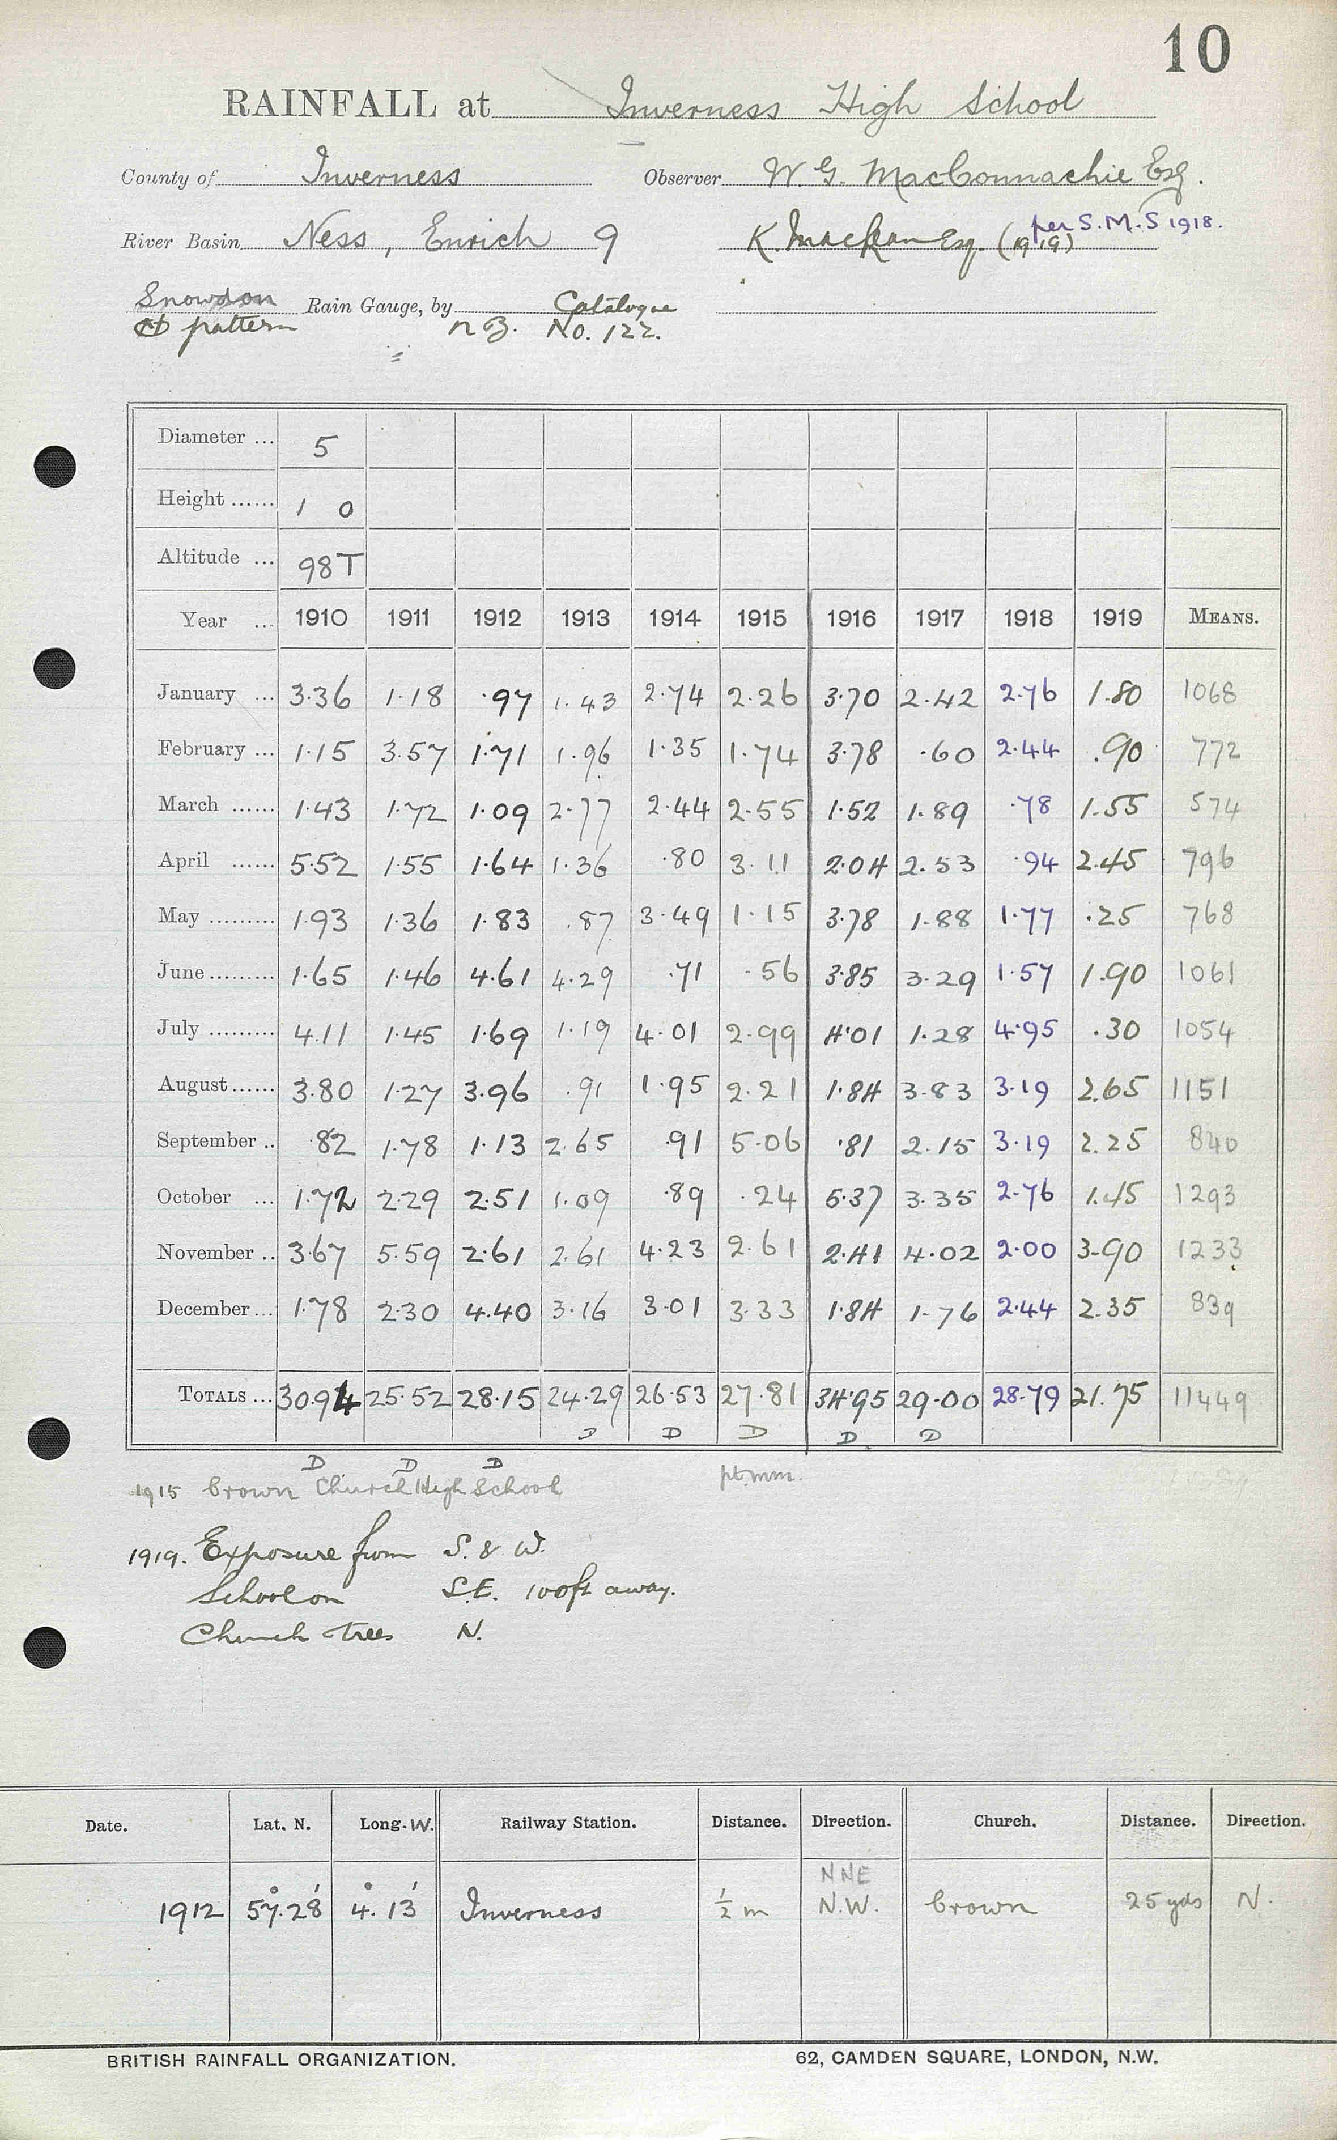 10
RAINFALL at Inverness High School
County of Inverness Observer W. G. MacConnachie Esq.
River Basin Ness, Enrich 9 K. Esq. (1919) per S.M.S 1918.
Snowdon Rain Gauge, by Catalogue
pattern n B. No. 122.
Diameter ... 5
Height ...... 1 0
Altitude ... 98T
Year ... 1910 1911 1912 1913 1914 1915 1916 1917 1918 1919 MEANS.
January ... 3.36 1.18 .97 1.43 2.74 2.26 3.70 2.42 2.76 1.80 1068
February ... 1.15 3.57 1.71 1.96 1.35 1.74 3.78 .60 2.44 .90 772
March ...... 1.43 1.72 1.09 2.77 2.44 2.55 1.52 1.89 .78 1.55 574
April ...... 5.52 1.55 1.64 1.36 .80 3.11 2.04 2.53 .94 2.45 796
May ......... 1.93 1.36 1.83 .87 3.49 1.15 3.78 1.88 1.77 .25 768
June ......... 1.65 1.46 4.61 4.29 .71 .56 3.85 3.29 1.57 1.90 1061
July ......... 4.11 1.45 1.69 1.19 4.01 2.99 4.01 1.28 4.95 .30 1054
August ...... 3.80 1.27 3.96 .91 1.95 2.21 1.84 3.83 3.19 2.65 1151
September .. .82 1.78 1.13 2.65 .91 5.06 .81 2.15 3.19 2.25 840
October ... 1.72 2.29 2.51 1.09 .89 .24 5.37 3.35 2.76 1.45 1293
November .. 3.67 5.59 2.61 2.61 4.23 2.61 2.41 4.02 2.00 3.90 1233
December ... 1.78 2.30 4.40 3.16 3.01 3.33 1.84 1.76 2.44 2.35 839
TOTALS ... 30.94 25.52 28.15 24.29 26.53 27.81 34.95 29.00 28.79 21.75 11449
D D D D D
D D D
1915 Crown Church High School pt. mm.
1919. Exposure from S. & W.
School on S.E. 100ft away.
Church trees N.
Date. Lat. N. Long. W. Railway Station. Distance. Direction. Church. Distance. Direction.
NNE
1912 57°.28' 4°.13' Inverness ½ m N.W. Crown 25 yds N.
BRITISH RAINFALL ORGANIZATION. 62, CAMDEN SQUARE, LONDON, N.W.